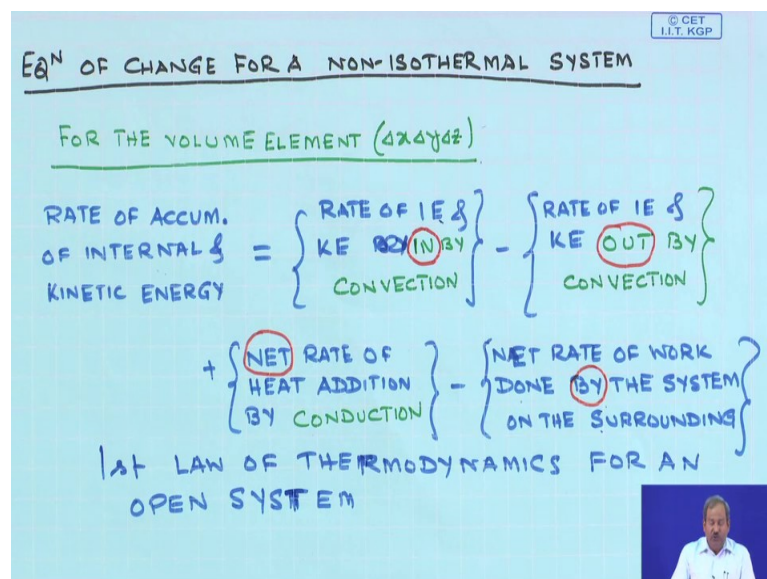 © CET
I.I.T. KGP
EQᴺ OF CHANGE FOR A NON-ISOTHERMAL SYSTEM
FOR THE VOLUME ELEMENT (ΔxΔyΔz)
RATE OF ACCUM.
OF INTERNAL &
KINETIC ENERGY
=
RATE OF IE &
KE IN BY
CONVECTION
-
RATE OF IE &
KE OUT BY
CONVECTION
+
NET RATE OF
HEAT ADDITION
BY CONDUCTION
-
NET RATE OF WORK
DONE BY THE SYSTEM
ON THE SURROUNDING
1st LAW OF THERMODYNAMICS FOR AN
OPEN SYSTEM